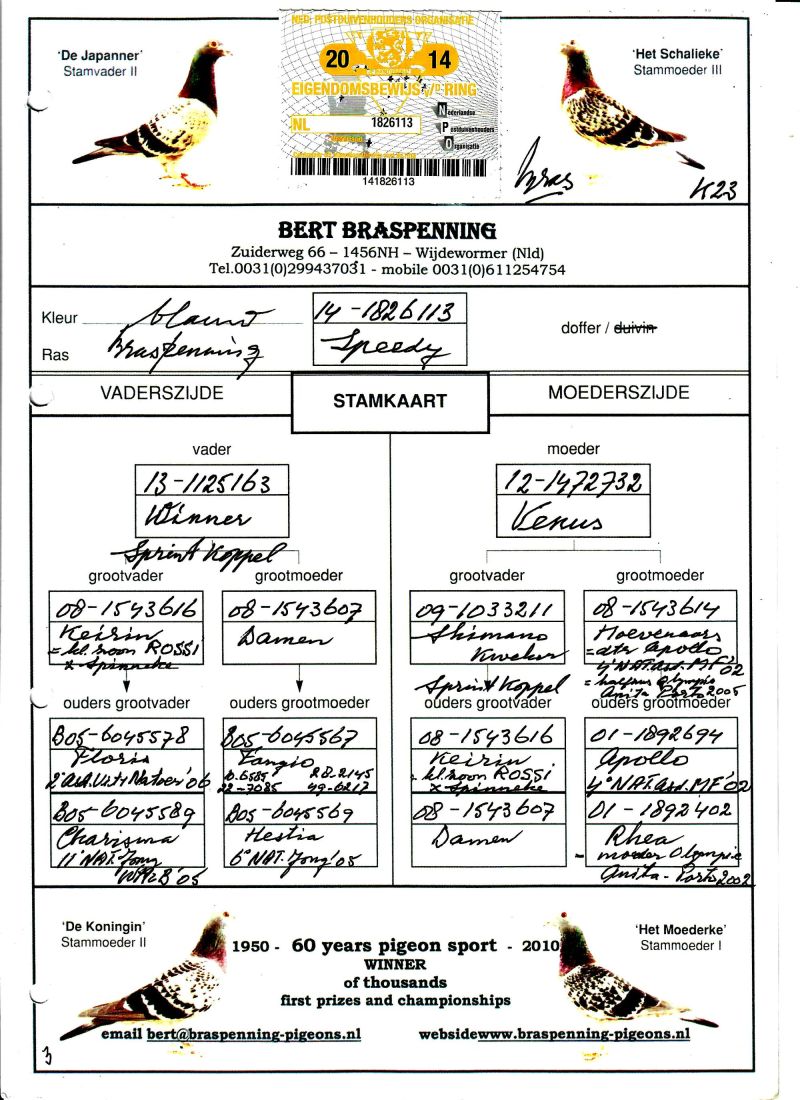 NED. POSTDUIVENHOUDERS ORGANISATIE
20 14
EIGENDOMSBEWIJS v/D RING
NL 1826113
Nederlandse
Postduivenhouders
Organisatie
141826113
'De Japanner'
Stamvader II
'Het Schalieke'
Stammoeder III
Bras
K23
BERT BRASPENNING
Zuiderweg 66 – 1456NH – Wijdewormer (Nld)
Tel.0031(0)299437031 - mobile 0031(0)611254754
Kleur blauw
Ras Braspenning
14-1826113
Speedy
doffer / duivin
VADERSZIJDE
STAMKAART
MOEDERSZIJDE
vader
13-1125163
Winner
Sprint Koppel
moeder
12-1472732
Venus
grootvader
08-1543616
Keirin
= kl. zoon ROSSI
x Spinneke
grootmoeder
08-1543607
Damen
grootvader
09-1033211
Shimano
Kweker
Sprint Koppel
grootmoeder
08-1543614
Hoevenaars
= dtr Apollo
4e NAT. Asd. MF '02
= halfzus Olympic
Anita Porto 2005
ouders grootvader
B05-6045578
Floris
B05-6045589
Charisma
11e NAT. Jong
'05
ouders grootmoeder
B05-6045567
Tangio
B05-6045569
Hestia
6e NAT. Jong '05
ouders grootvader
08-1543616
Keirin
= kl. zoon ROSSI
x Spinneke
08-1543607
Damen
ouders grootmoeder
01-1892694
Apollo
4e NAT. Asd. MF '02
01-1892402
Rhea
= moeder Olympic
Anita - Porto 2002
'De Koningin'
Stammoeder II
'Het Moederke'
Stammoeder I
1950 - 60 years pigeon sport - 2010
WINNER
of thousands
first prizes and championships
email bert@braspenning-pigeons.nl
websidewww.braspenning-pigeons.nl
3